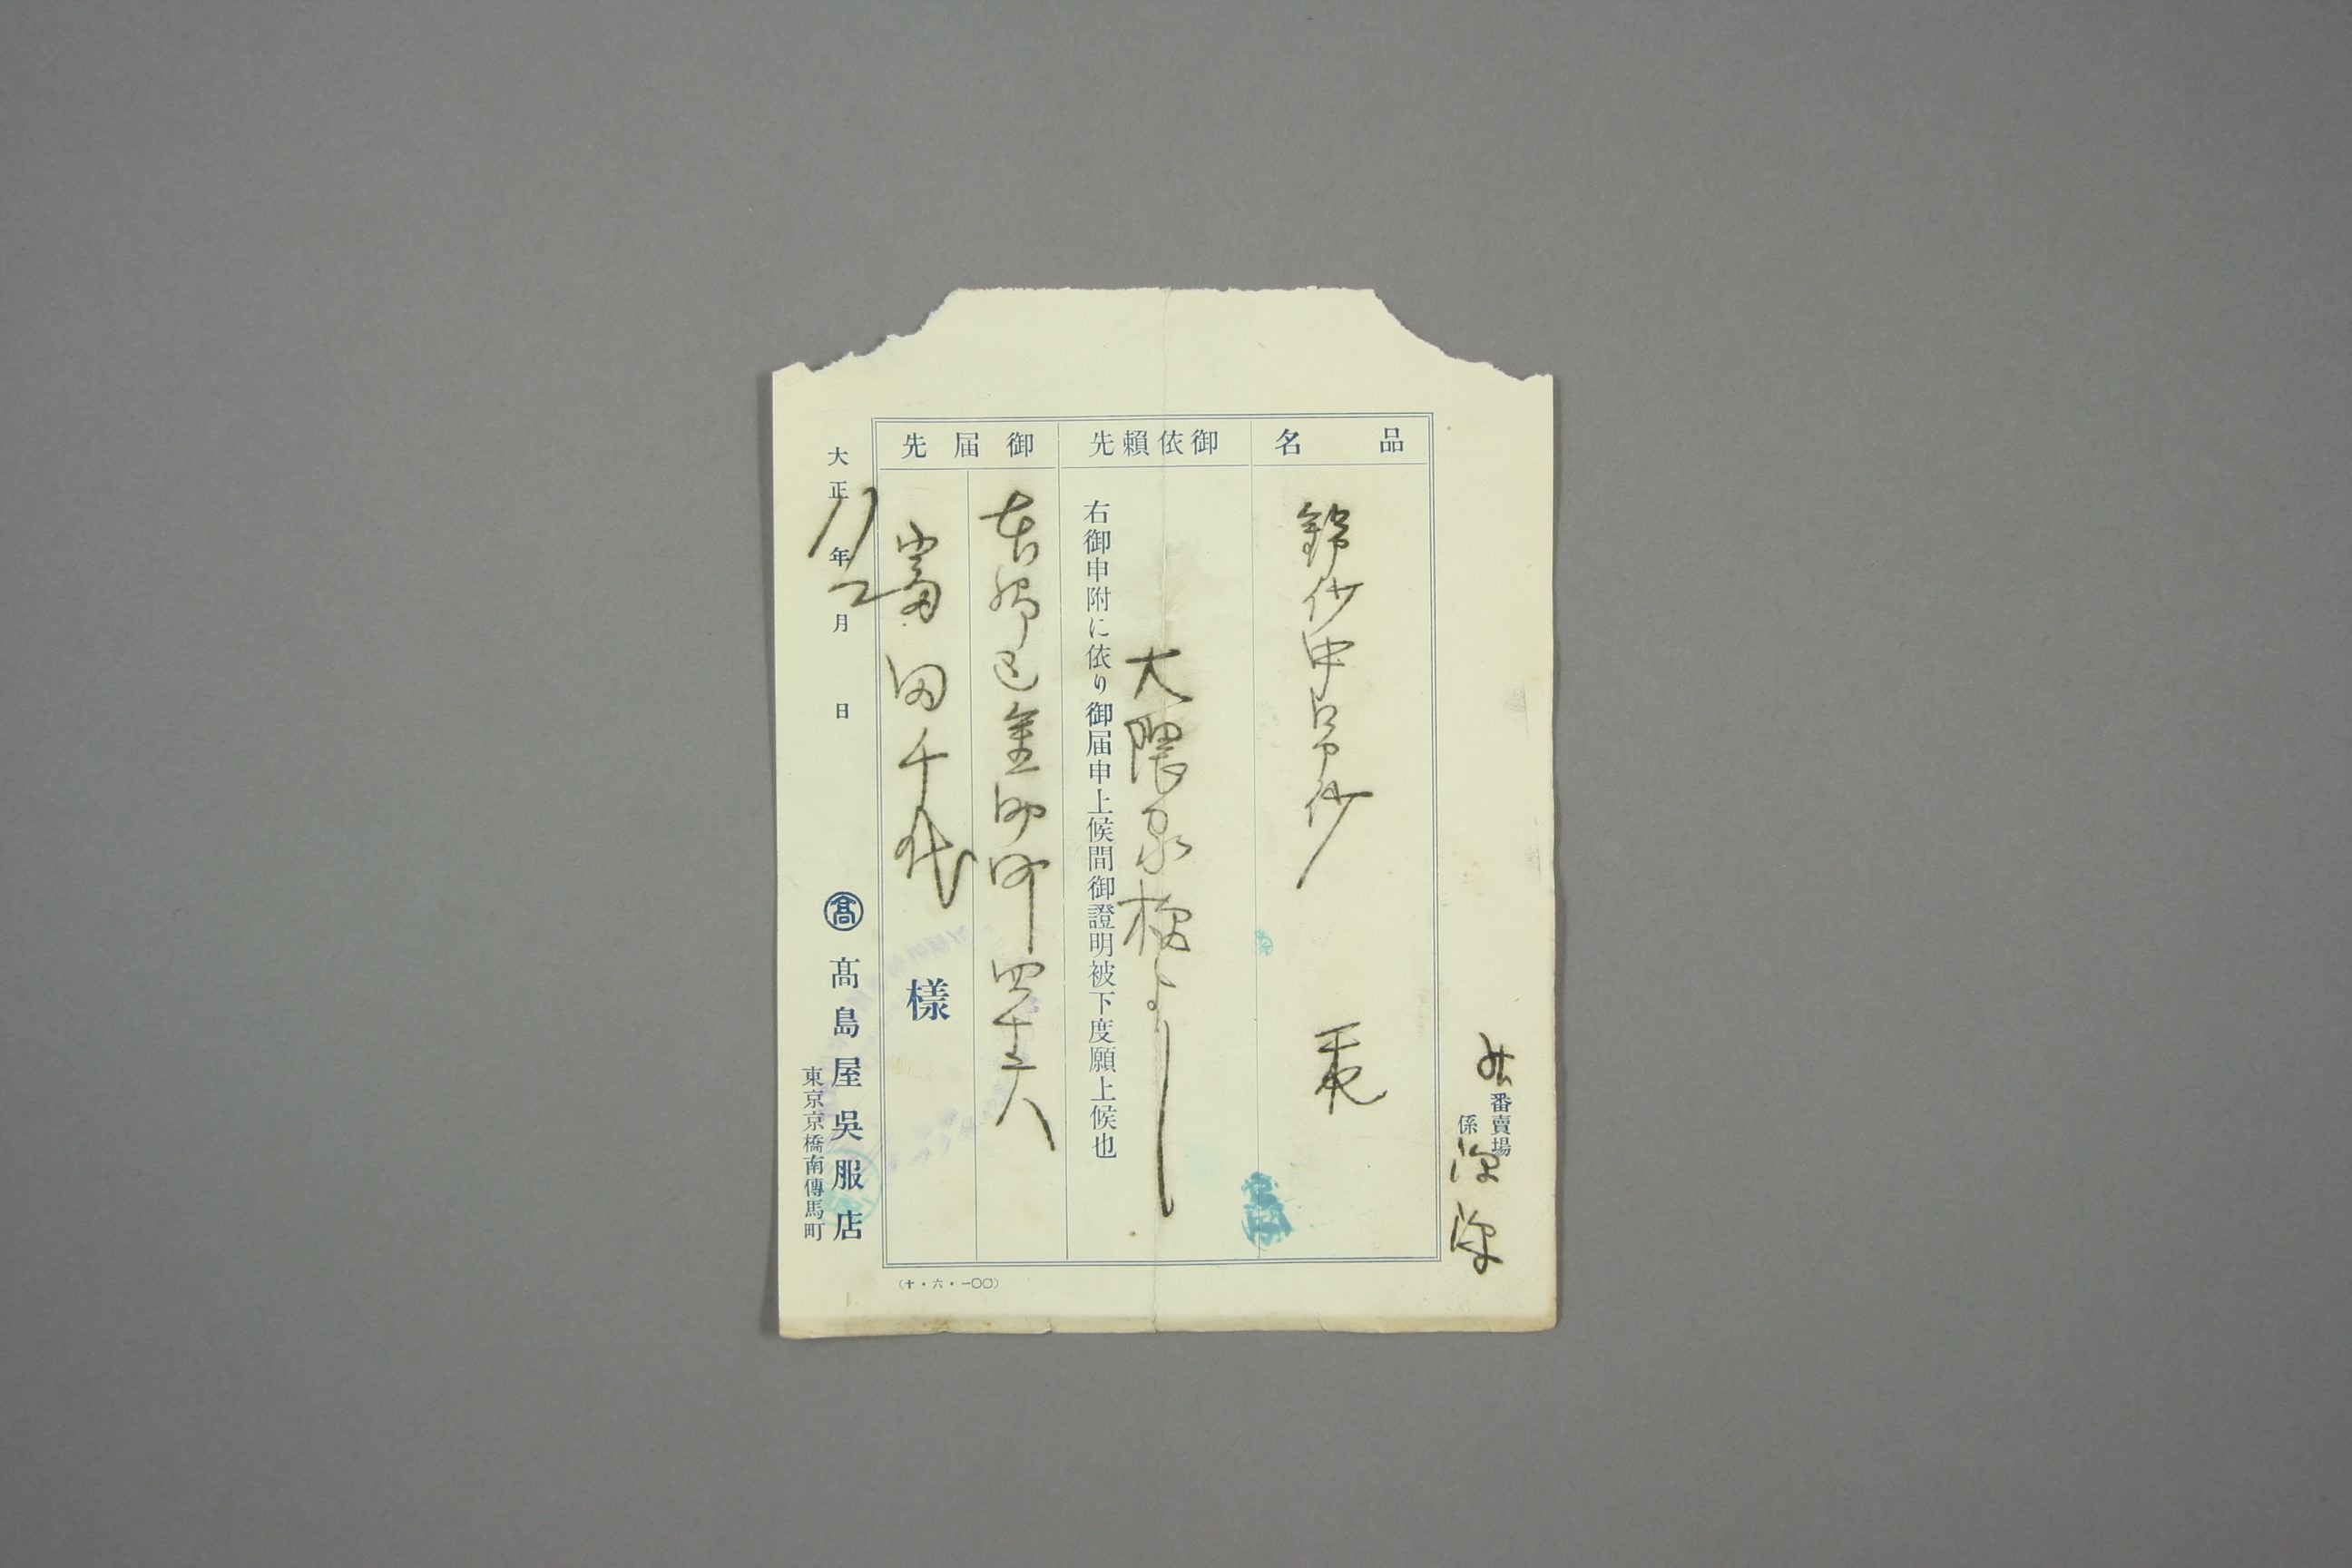 番賣場
係
品名
錦紗中帛紗
御依頼先
大隈家様より
右御申附に依り御届申上候間御證明被下度願上候也
御届先
本郷區金助町四十六
富田千代
樣
大正11年2月日
髙
髙島屋吳服店
東京京橋南傳馬町
(十・六・一〇〇)